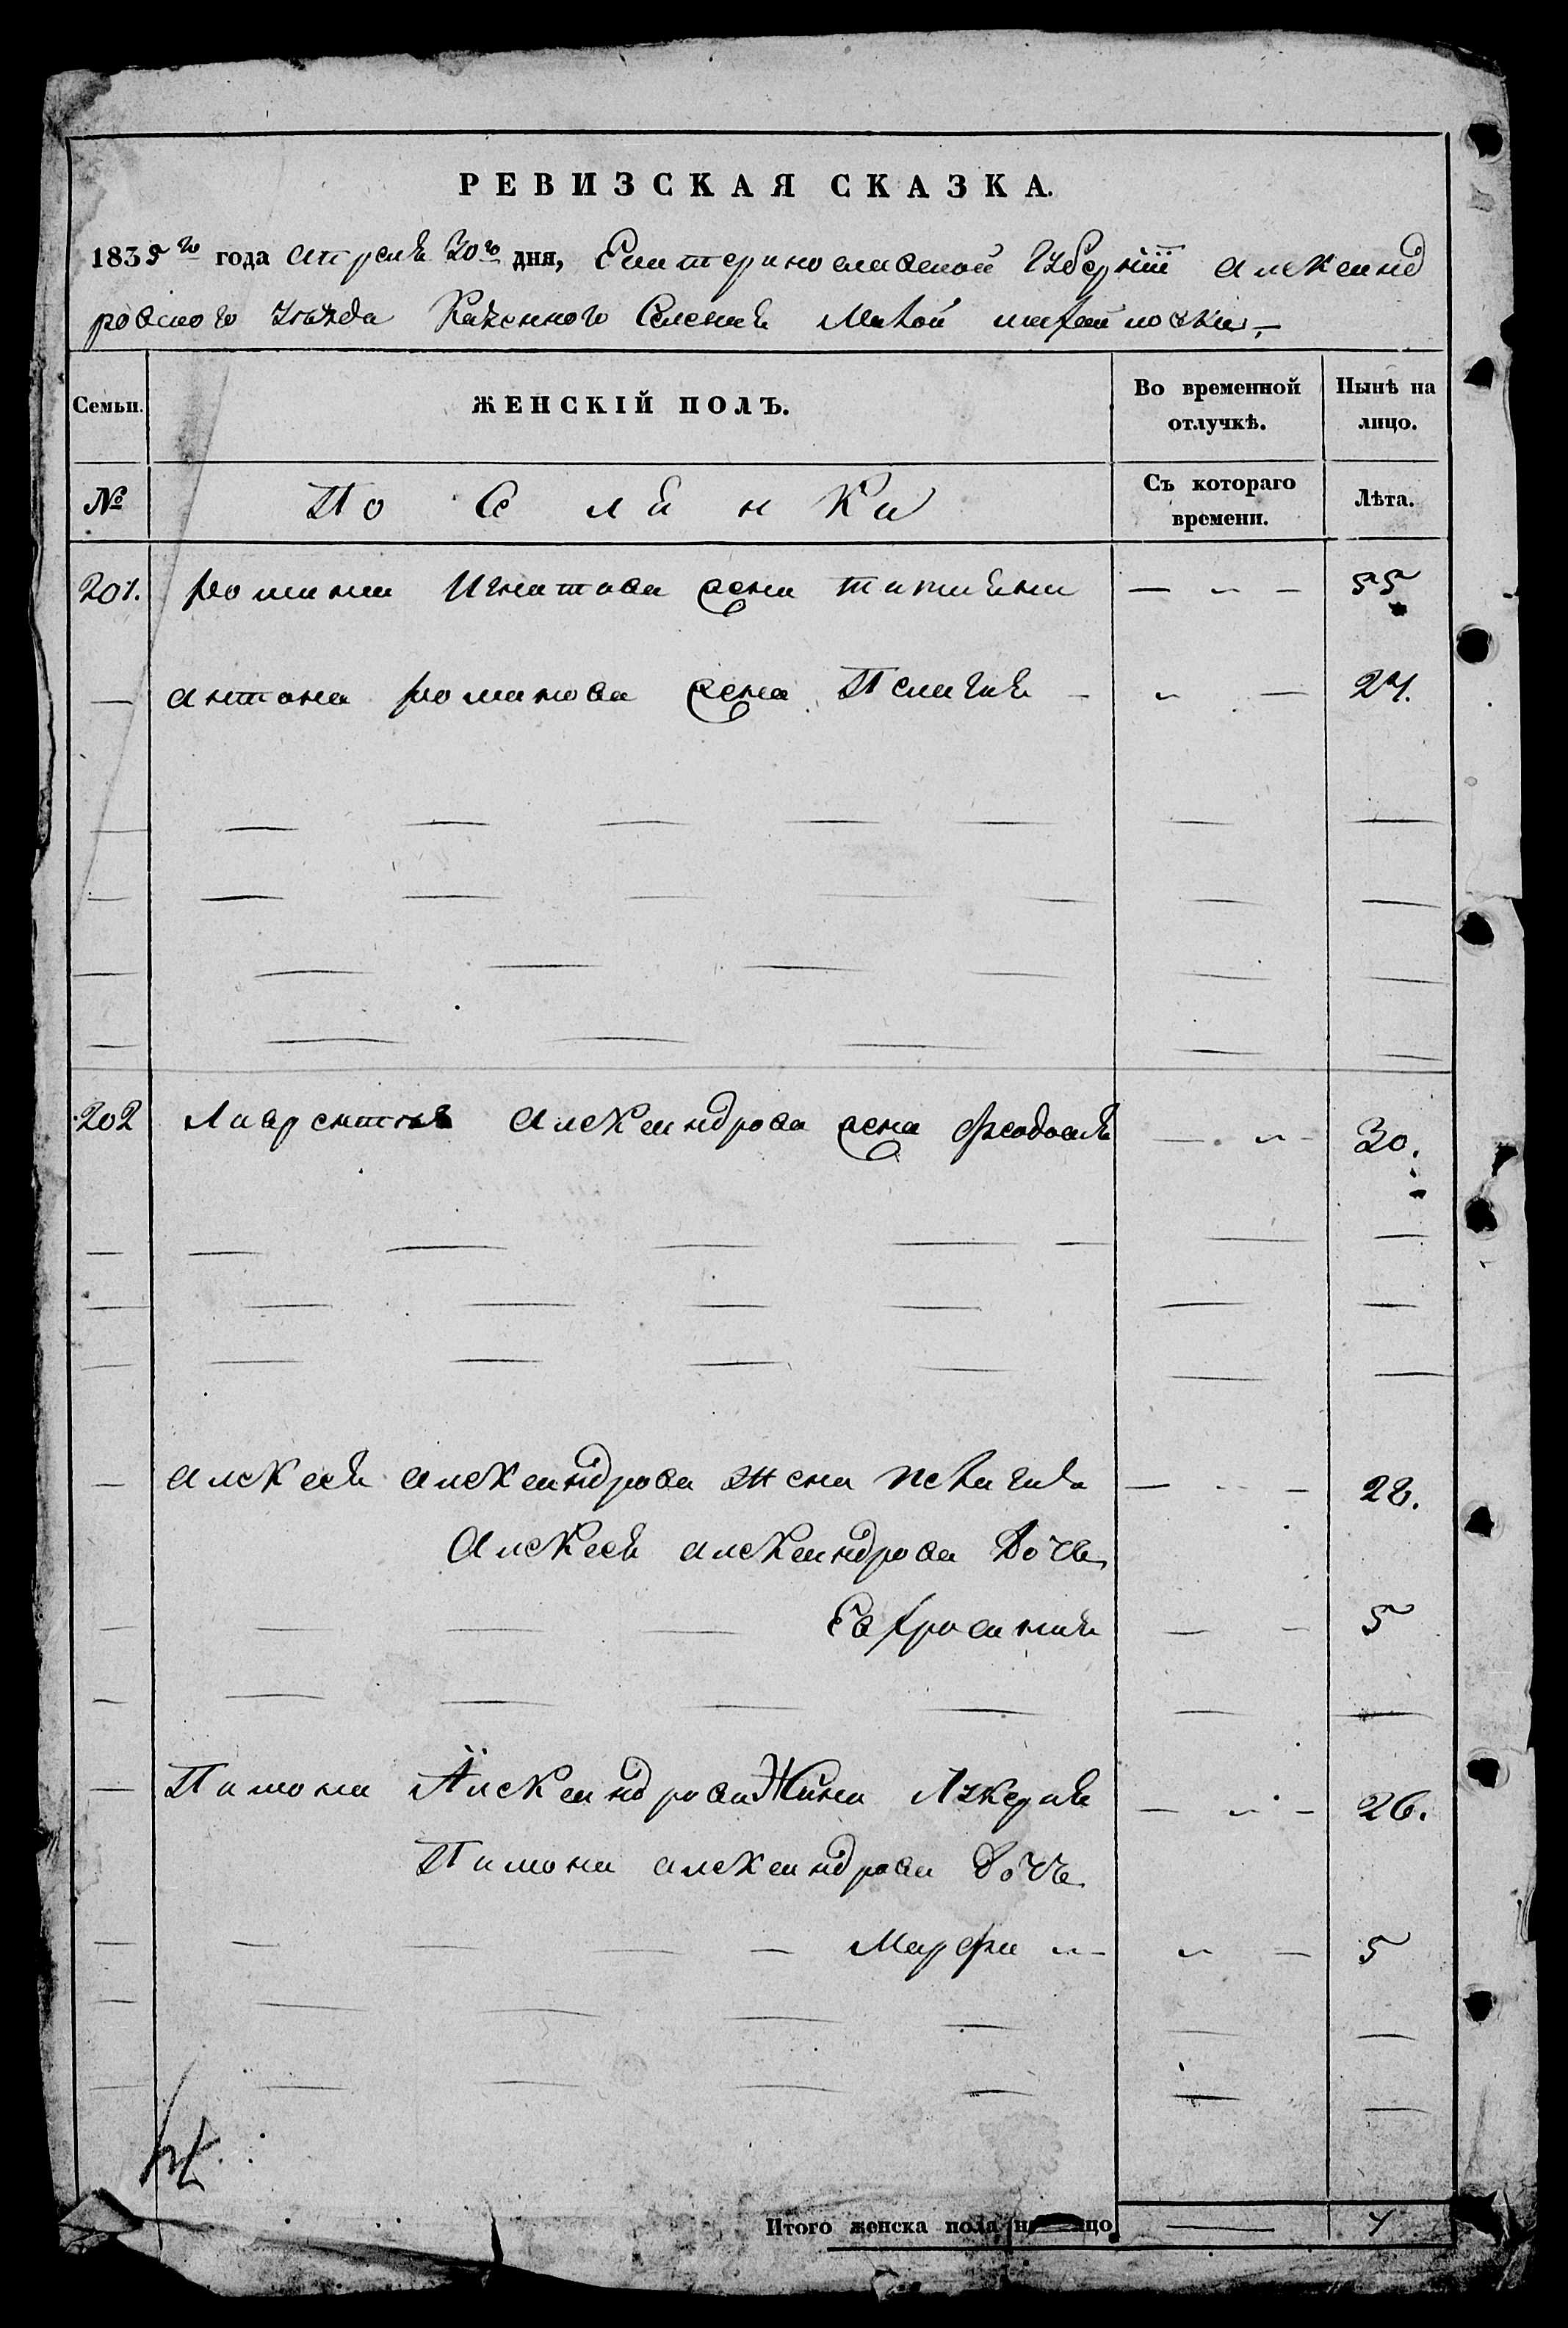 РЕВИЗСКАЯ СКАЗКА.
1835 го года апреля 30 го дня, Екатеринославской Губернїи Александ
ровского уѣзда Казенного Селения Малой михайловки
Семьи. ЖЕНСКІЙ ПОЛЪ. Во временной отлучкѣ. Нынѣ на лицо.
№ Поселянки Съ котораго времени. Лѣта.
201. романа Игнатова жена татияна — — 55
— антона романова жена Пелагия — — 27.
202 Лаврентия Александрова жена Феодосия — — 30.
— алексея александрова жена пелагия — — 28.
Алексея александрова дочь
— — — Евфросиния — — 5
— Памона Александрова Жена Лукерия — — 26.
Памона александрова дочь
— — — — — Марфа — — 5
Итого женска пола на лицо — 7